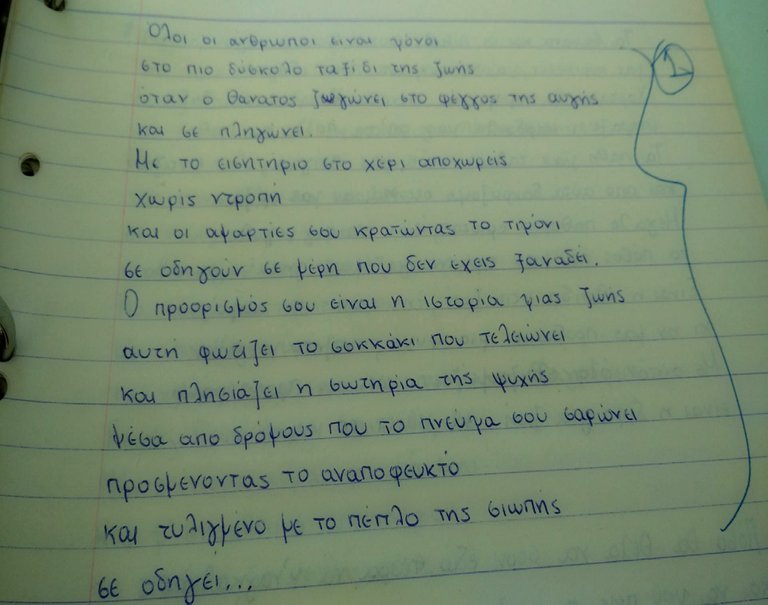 Όλοι οι ανθρωποι ειναι μόνοι
στο πιο δύσκολο ταξίδι της ζωής
όταν ο θανατος ζυγώνει στο φέγγος της αυγής
και σε πληγώνει.
Με το εισητηριο στο χέρι αποχωρεις
χωρίς ντροπή
και οι αμαρτίες σου κρατώντας το τιμόνι
σε οδηγούν σε μέρη που δεν εχεις ξαναδεί.
Ο προορισμός σου ειναι η ιστορία μιας ζωής
αυτή φωτίζει το σοκκάκι που τελειώνει
και πλησιάζει η σωτηρία της ψυχής
μέσα απο δρόμους που το πνεύμα σου σαρώνει
προσμενοντας το αναποφευκτό
και τυλιγμένο με το πέπλο της σιωπής
σε οδηγεί...
1